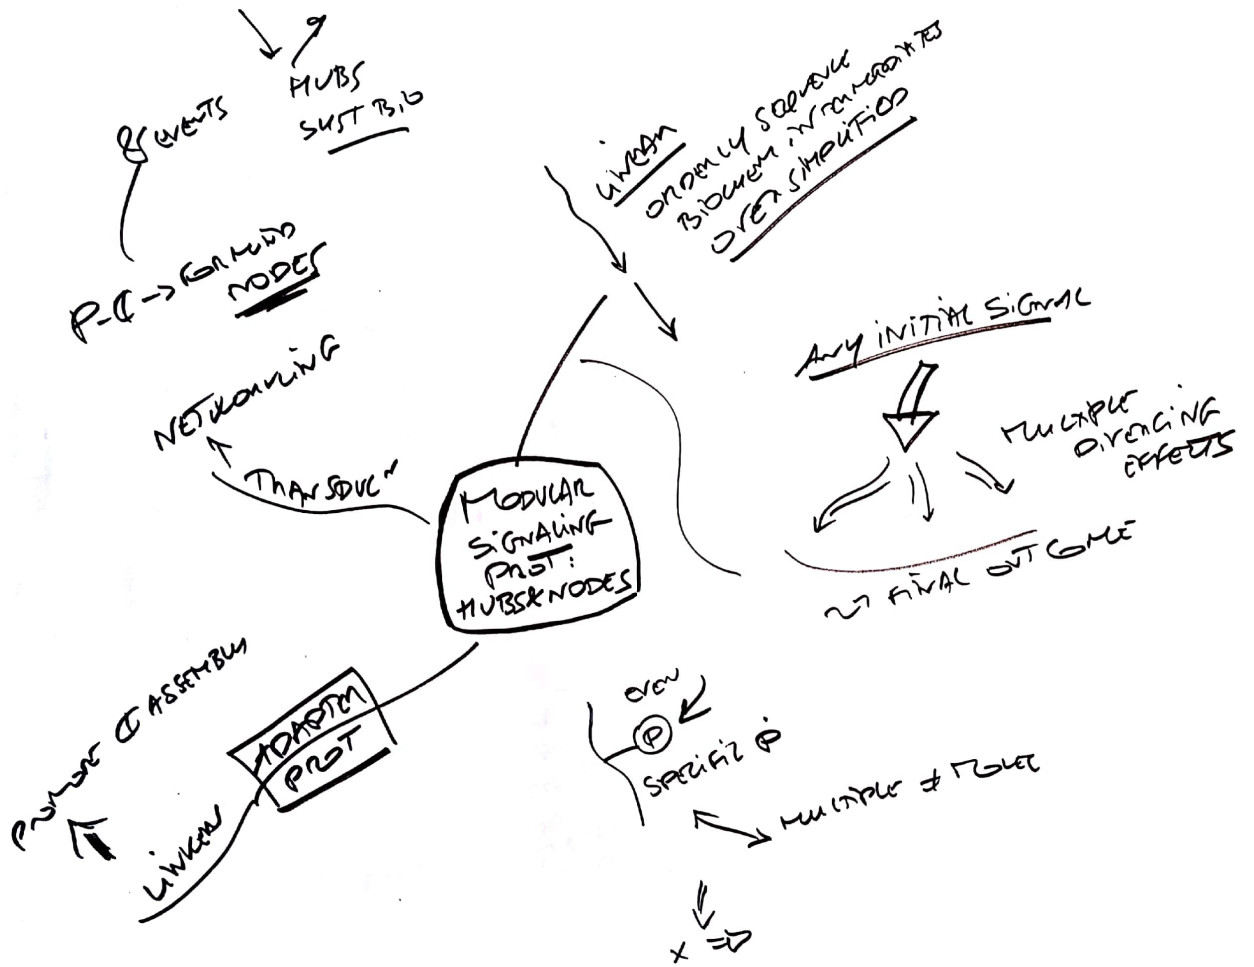 HUBS
SYST BIO
& EVENTS
P-C → FORMING
NODES
NETWORKING
TRANSDUCN
LINEAR
ORDERLY SEQUENCE
BIOCHEM. INTERMEDIATES
OVERSIMPLIFIED
ANY INITIAL SIGNAL
MULTIPLE
DIVERGING
EFFECTS
FINAL OUTCOME
MODULAR
SIGNALING
PROT:
HUBS&NODES
PROMOTE C ASSEMBLY
ADAPTER
PROT
LINKERS
EVEN
P
SPECIFIC P
MULTIPLE ≠ MOLEC
X ⇒